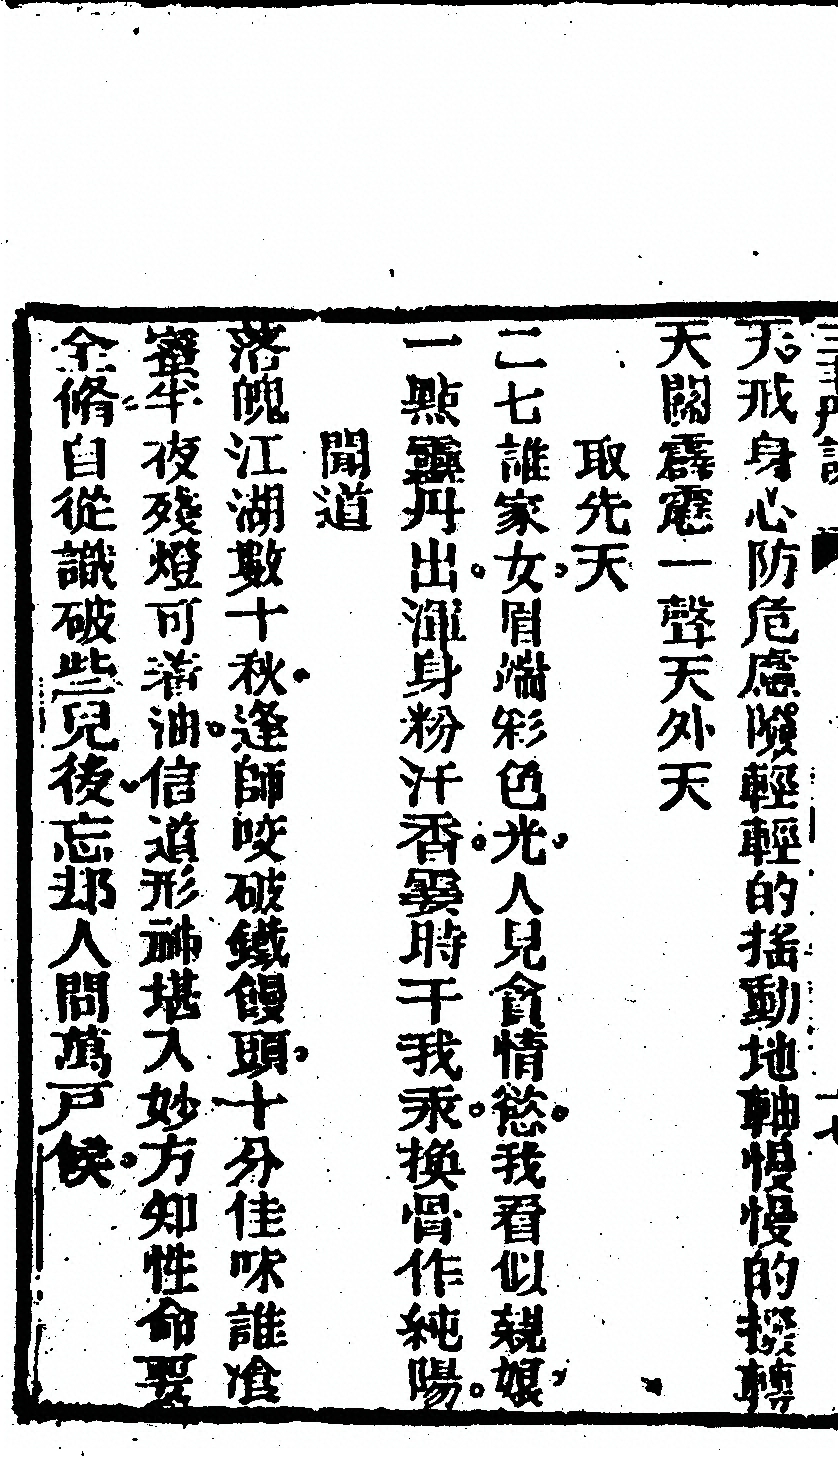 天戒身心防危慮險輕輕的搖動地軸慢慢的撥轉
天關霹靂一聲天外天
取先天
二七誰家女眉端彩色光人兒貪情慾我看似親娘
一點靈丹出渾身粉汗香霎時干我汞換骨作純陽
聞道
落魄江湖數十秋逢師咬破鐵饅頭十分佳味誰飡
蜜半夜殘燈可著油信道形神堪入妙方知性命要
全脩自從識破些兒後忘却人間萬戸候